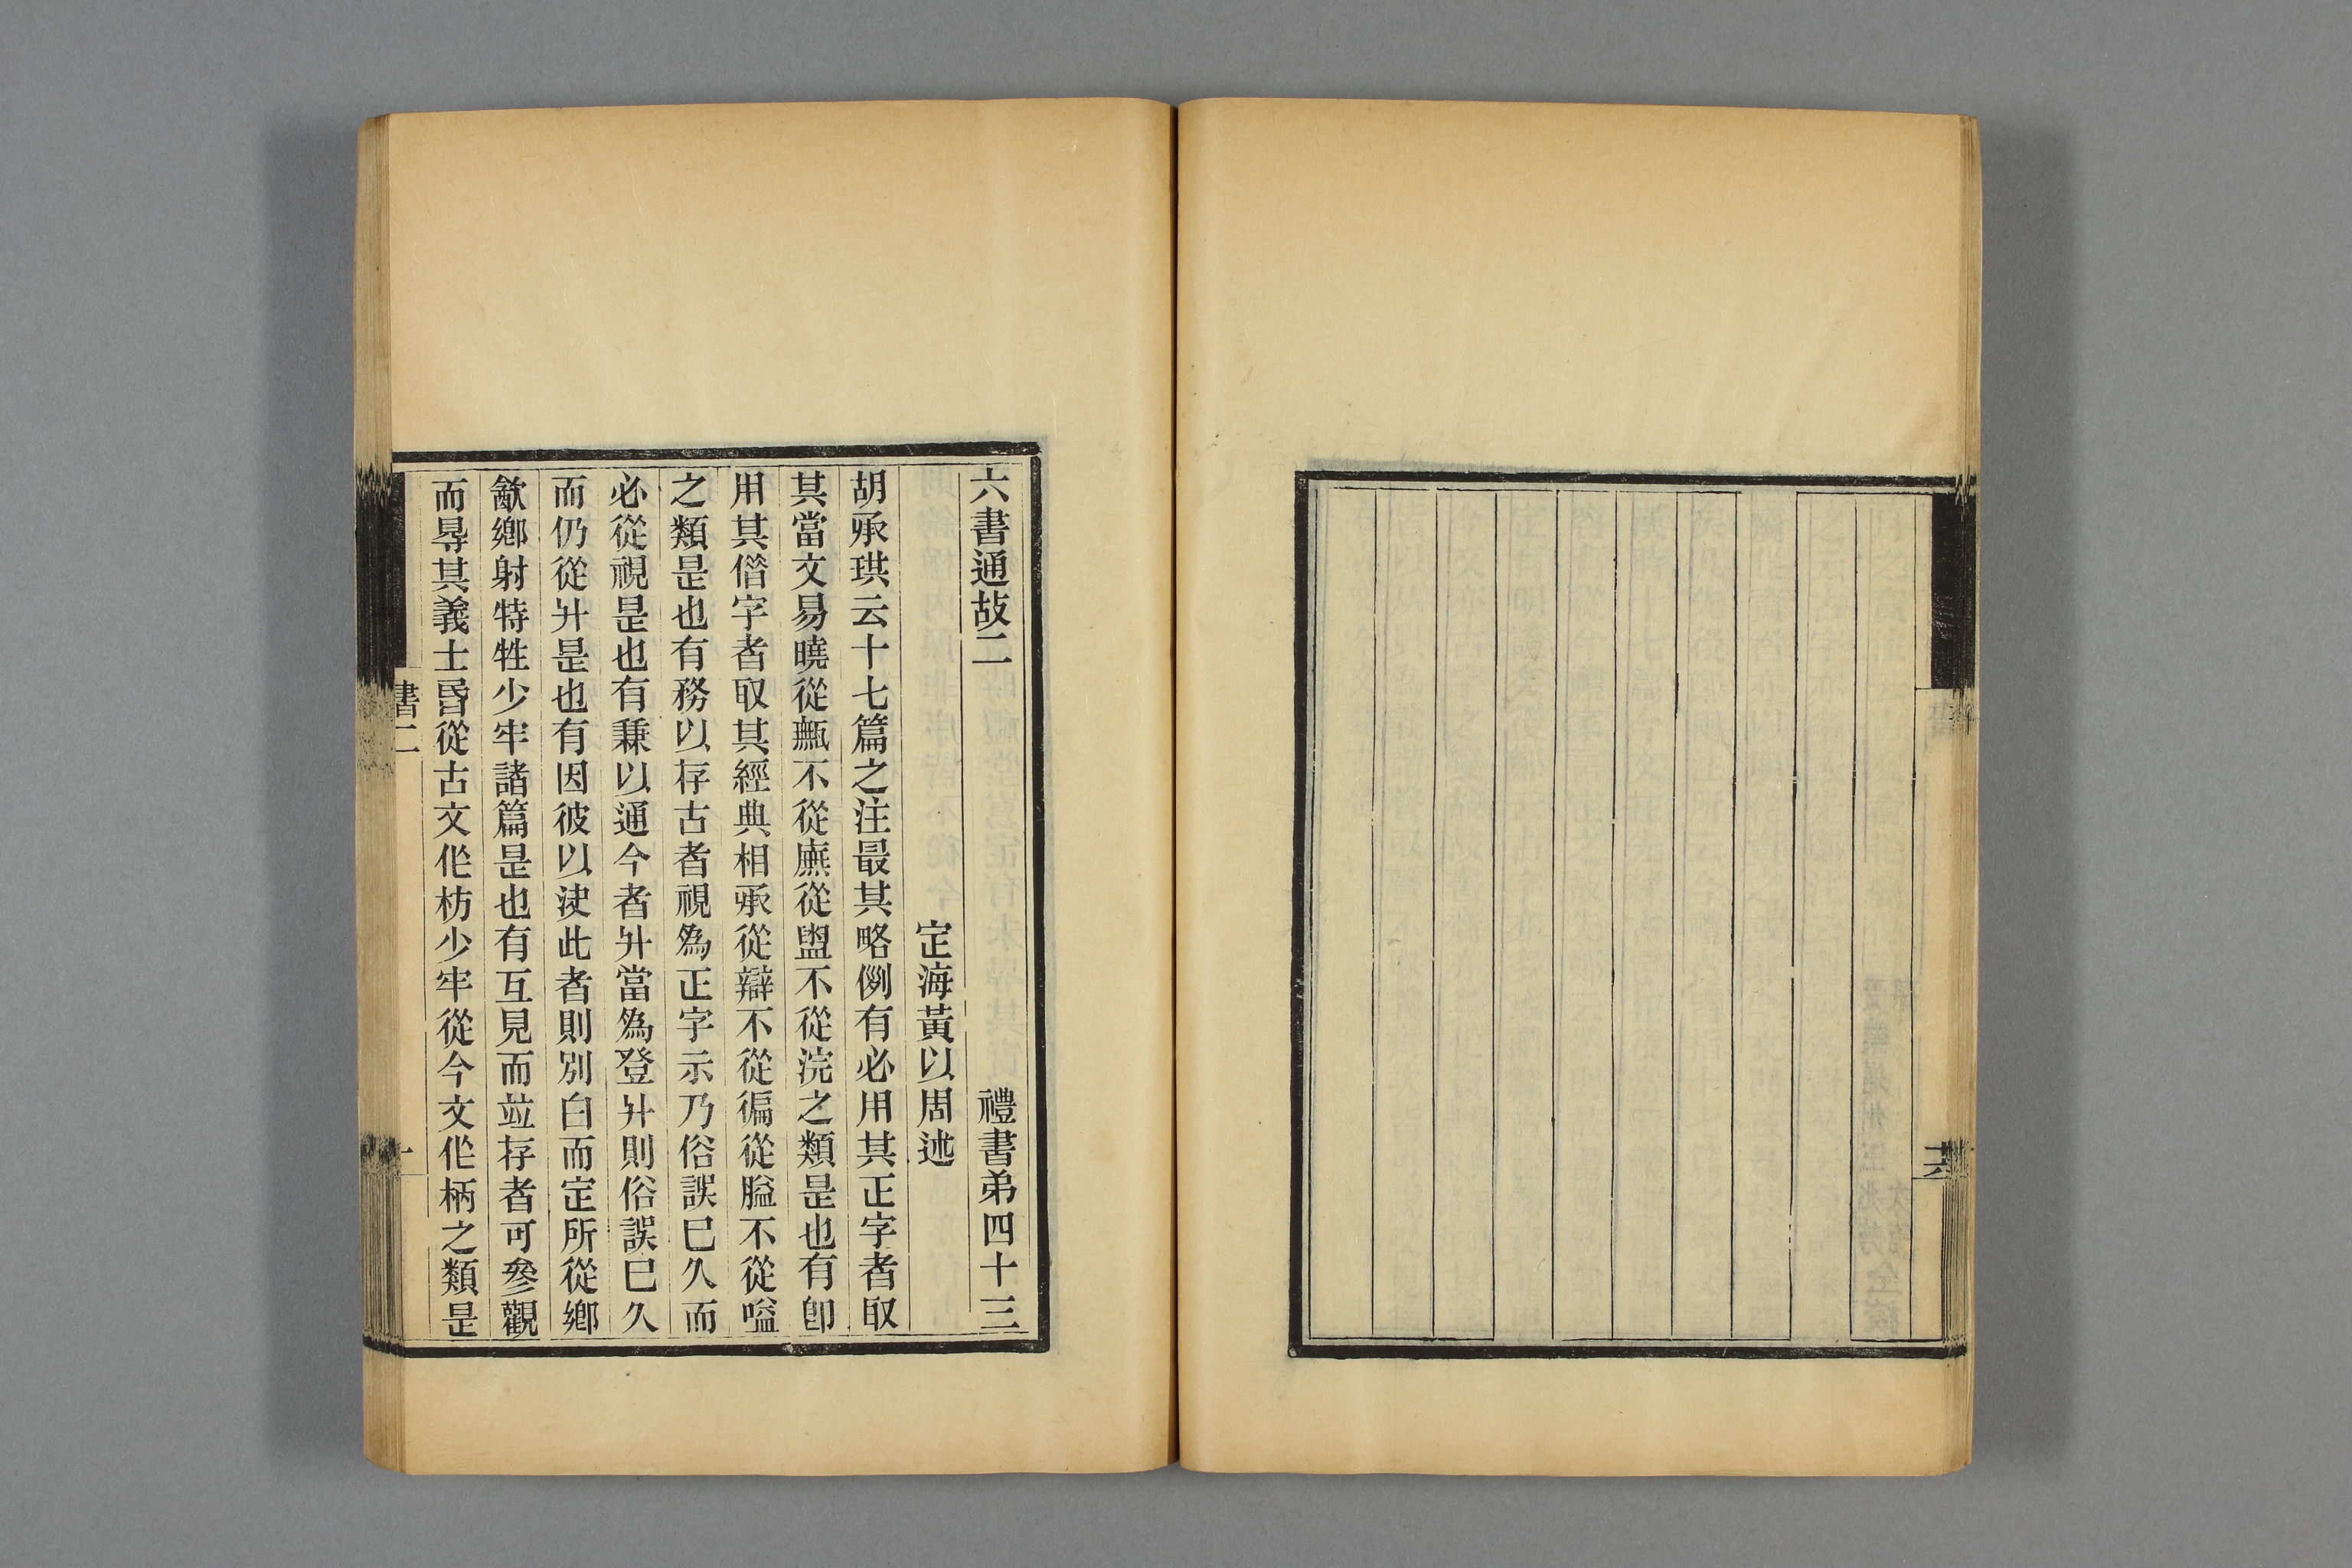 六書通故二　禮書弟四十三
定海黃以周述
胡承珙云十七篇之注最其略例有必用其正字者取
其當文易曉從甒不從廡從盥不從浣之類是也有卽
用其借字者取其經典相承從辯不從徧從膉不從嗌
之類是也有務以存古者視爲正字示乃俗誤已久而
必從視是也有兼以通今者升當爲登升則俗誤已久
而仍從升是也有因彼以決此者則別白而定所從鄉
飮鄉射特牲少牢諸篇是也有互見而竝存者可參觀
而㝵其義士昏從古文作枋少牢從今文作柄之類是
書二
一
六